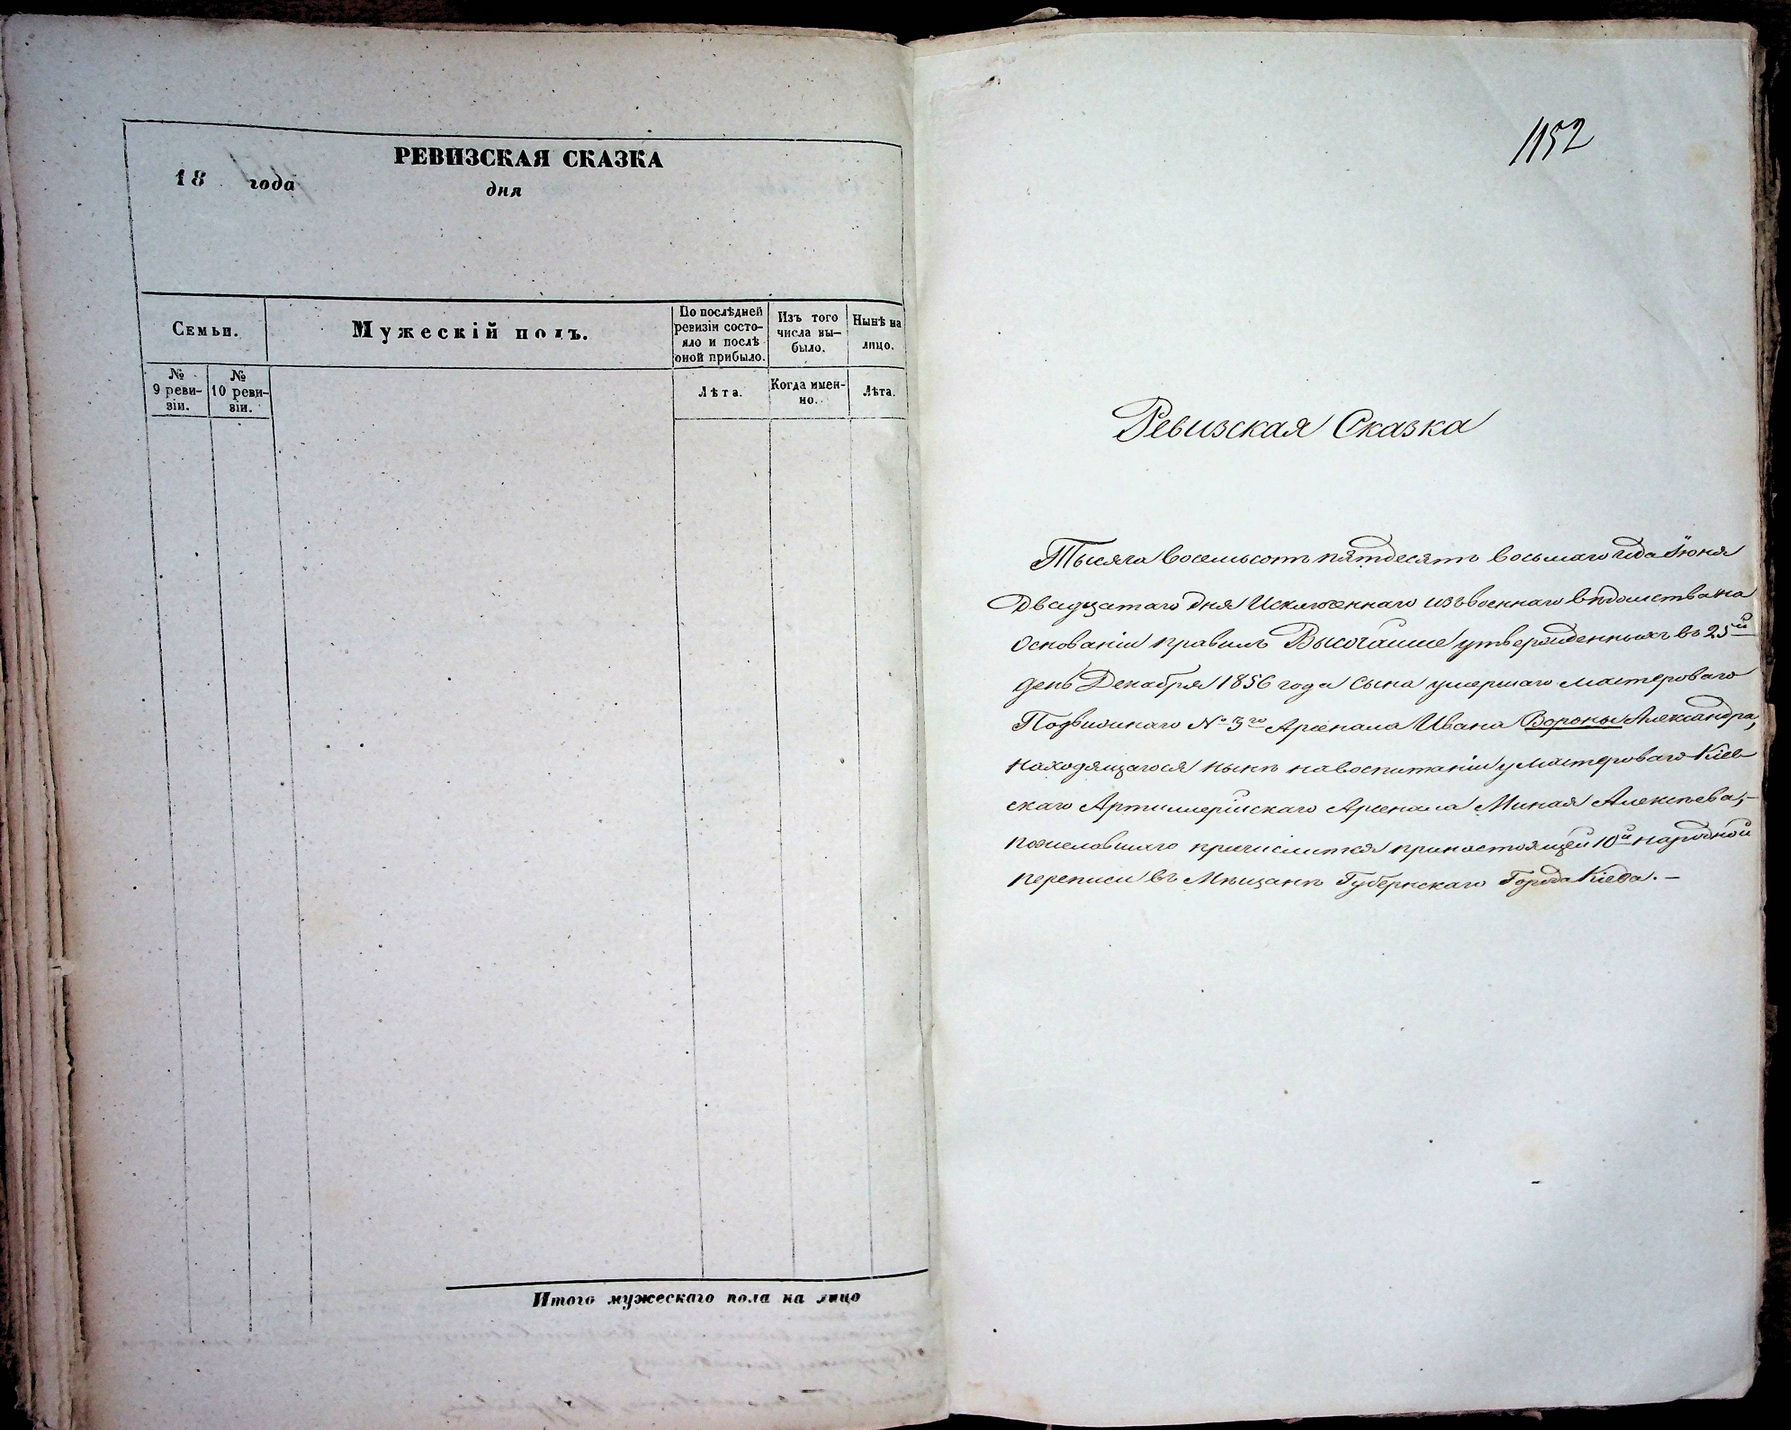 РЕВИЗСКАЯ СКАЗКА
18 года
дня
Семьи.
Мужескій полъ.
По послѣдней ревизіи состо-
яло и послѣ
оной прибыло.
Изъ того
числа вы-
было.
Нынѣ на
лицо.
№
9 реви-
зіи.
№
10 реви-
зіи.
Лѣта.
Когда имен-
но.
Лѣта.
Итого мужескаго пола на лицо
1152
Ревизская Сказка
Тысяча восемьсотъ пятдесятъ восьмаго года Іюня
Двадцатаго дня Исключеннаго изъ военнаго вѣдомства на
основаніи правилъ Высочайше утвержденныхъ въ 25й
день Декабря 1856 года сына умершаго мастероваго
Подвижнаго № 3го Арсенала Ивана Вороны Александра,
находящагося нынѣ на воспитаніи у мастероваго Кіев-
скаго Артиллерійскаго Арсенала Миная Алексѣева,-
пожелавшаго причислится при настоящей 10й народной
переписи въ Мѣщане Губернскаго Города Кіева.-